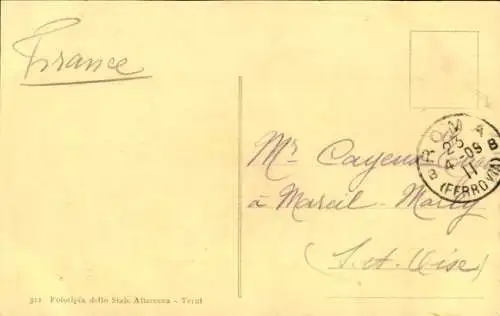 France
ROMA
23
4-09
B B
11
(FERROVIA)
Mr Cayeux
à Mareil-Marly
S. et Oise
312 Fototipia dello Stab. Alterocca - Terni